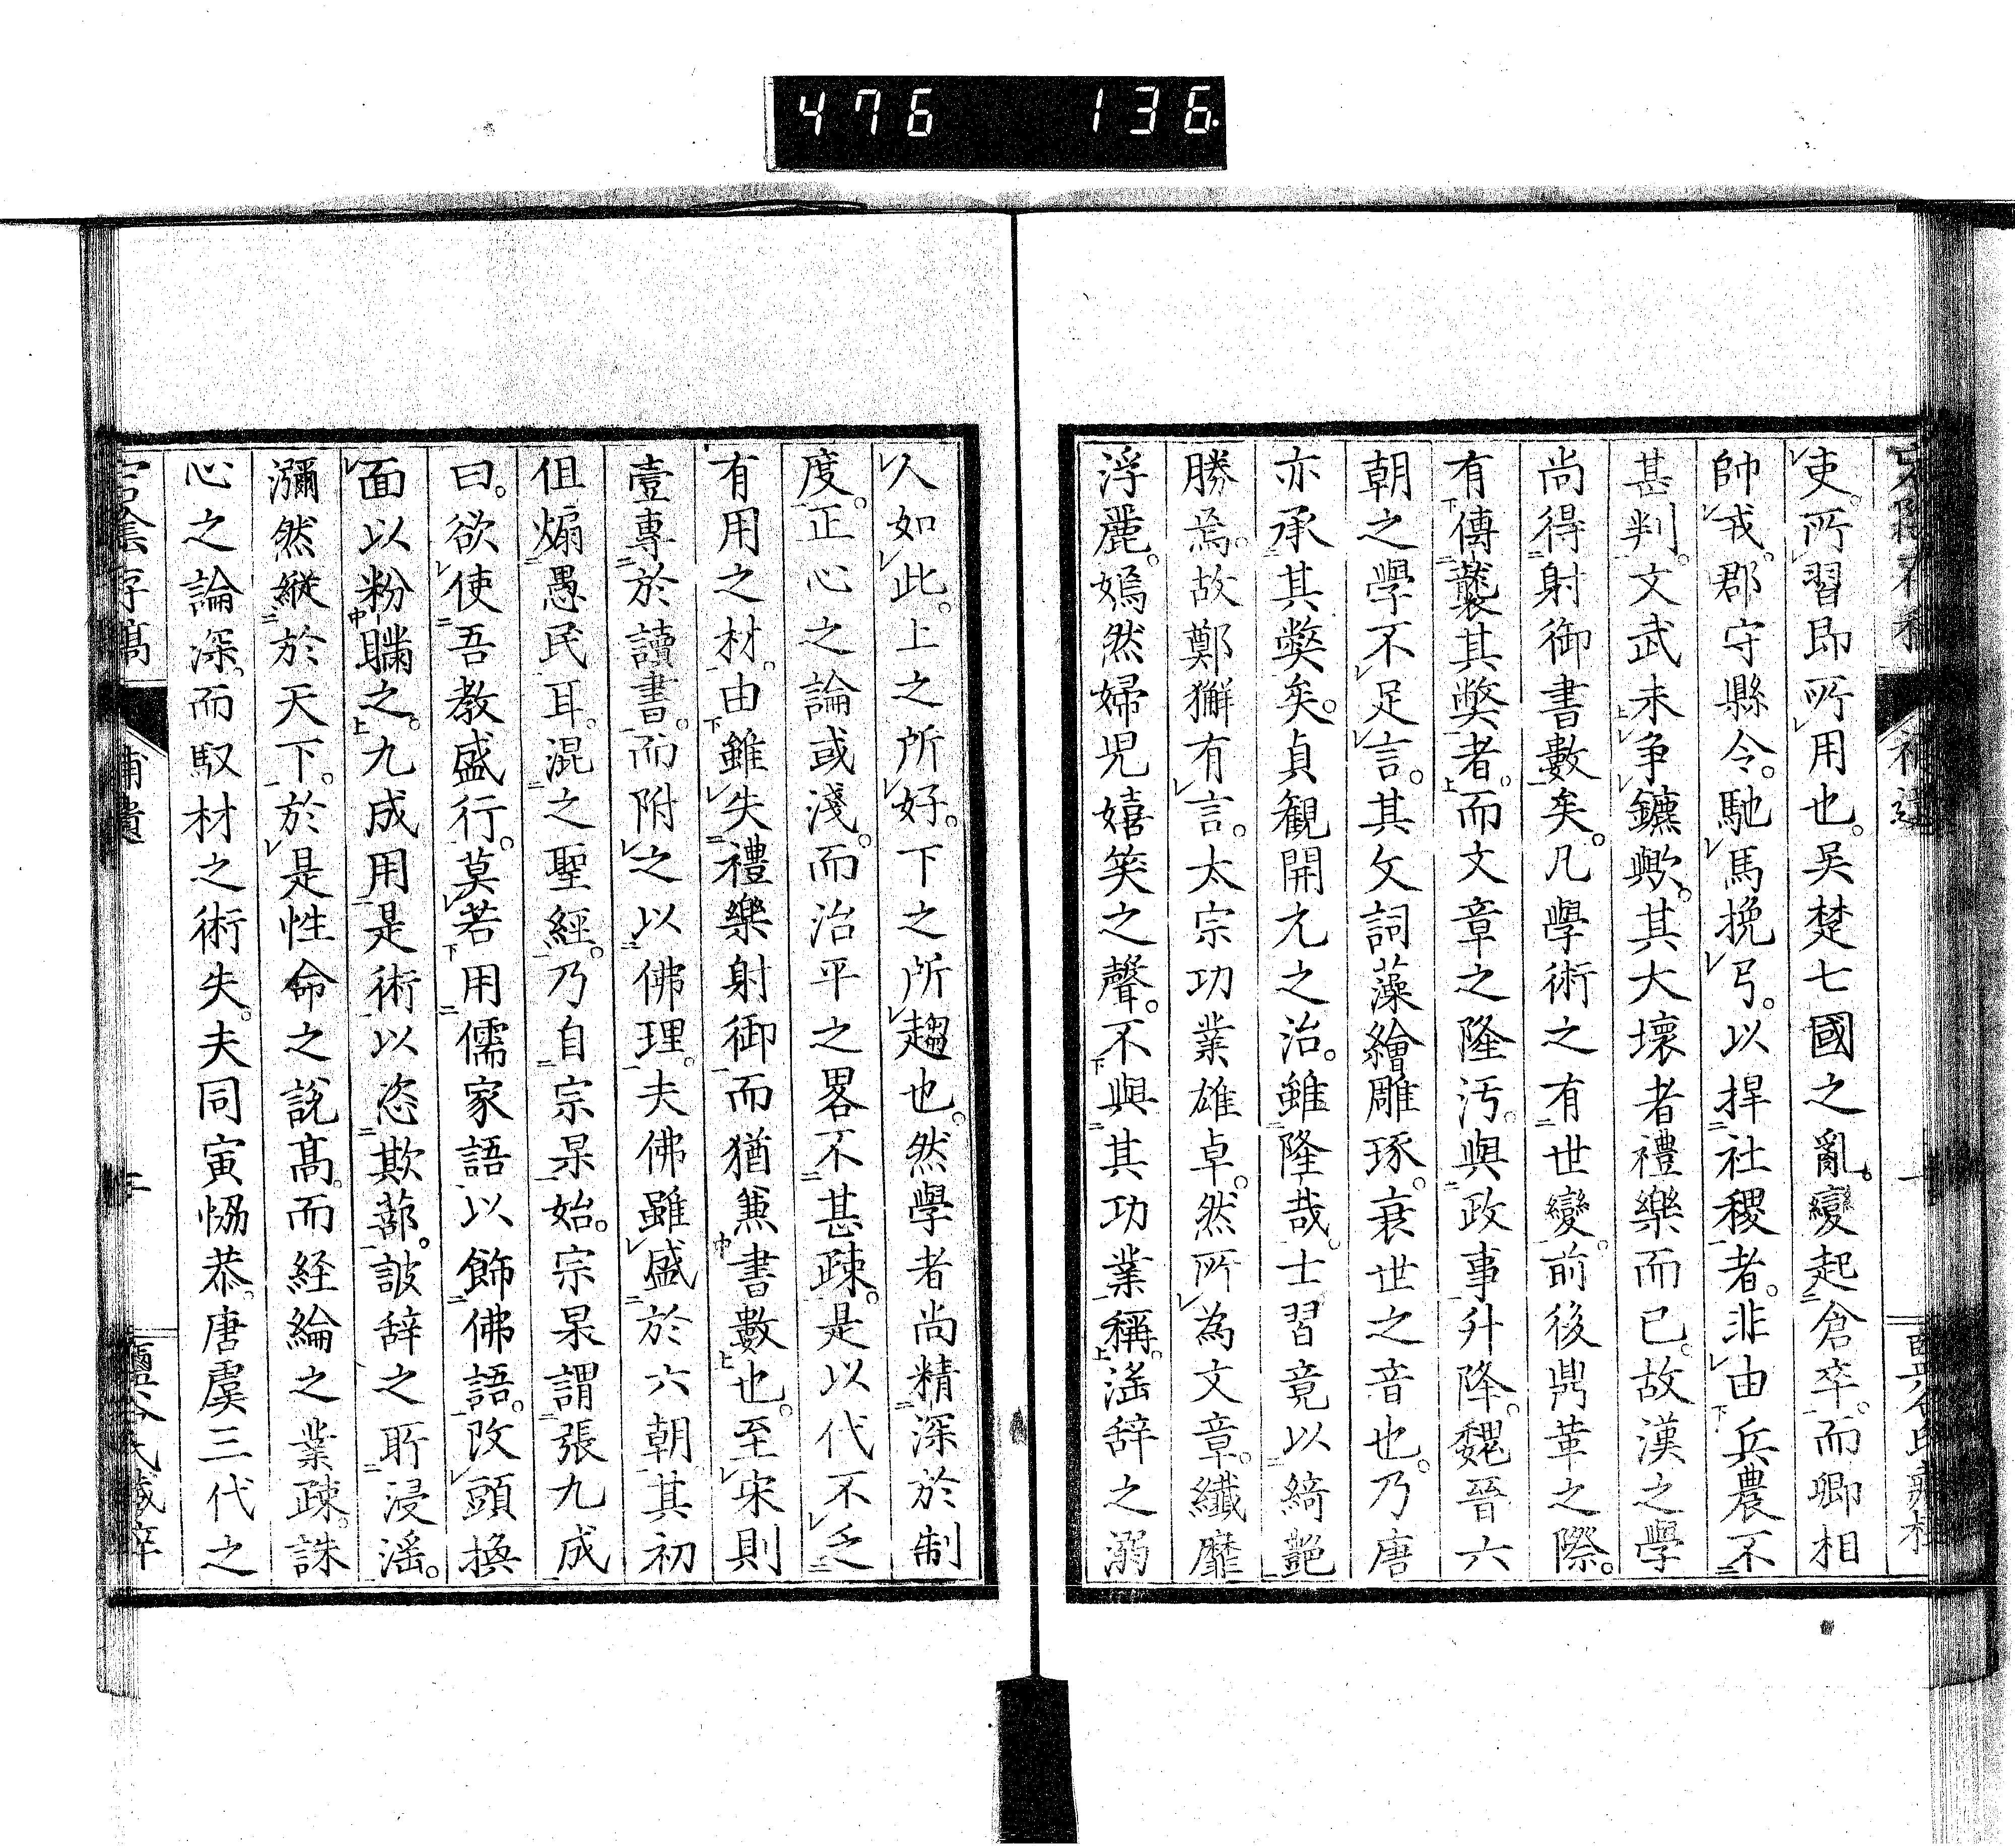 476 136
補遺
吏。所習即所用也。吳楚七國之亂。變起倉卒。而卿相
帥戎。郡守縣令。馳馬挽弓。以捍社稷者。非由兵農不
甚判。文武未爭鑣歟。其大壞者禮樂而已。故漢之學
尚得射御書數矣。凡學術之有世變。前後鼎革之際。
有傳襲其獘者。而文章之隆汚。與政事升降。魏晉六
朝之學不足言。其文詞藻繪雕琢。衰世之音也。乃唐
亦承其獘矣。貞觀開元之治。雖隆哉。士習竟以綺艶
勝焉。故鄭獬有言。太宗功業雄卓。然所為文章。纖靡
浮麗。嫣然婦兒嬉笑之聲。不與其功業稱。滛辞之溺
人如此。上之所好。下之所趨也。然學者尚精深於制
度。正心之論或淺。而治平之畧不甚疎。是以代不乏
有用之材。由雖失禮樂射御而猶兼書數也。至宋則
壹專於讀書。而附之以佛理。夫佛雖盛於六朝其初
但煽愚民耳。混之聖經。乃自宗杲始。宗杲謂張九成
曰。欲使吾教盛行。莫若用儒家語以飾佛語。改頭換
面以粉矖之。九成用是術以恣欺蔀。詖辞之所浸滛。
瀰然縱於天下。於是性命之說高。而経綸之業疎。誅
心之論深。而馭材之術失。夫同寅恊恭。唐虞三代之
宕陰存稿 補遺